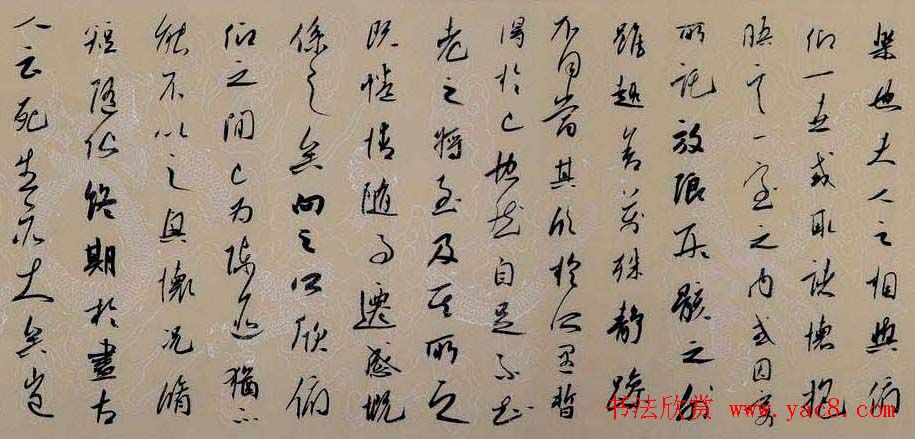 樂也夫人之相與俯
仰一世或取諸懷抱
晤言一室之內或因寄
所託放浪形骸之外
雖趣舍萬殊靜躁
不同當其欣於所遇暫
得於己快然自足不知
老之將至及其所之
既惓情隨事遷感慨
係之矣向之所欣俯
仰之間已為陳迹猶不
能不以之興懷況脩
短隨化終期於盡古
人云死生亦大矣豈
书法欣赏 www.yac8.com